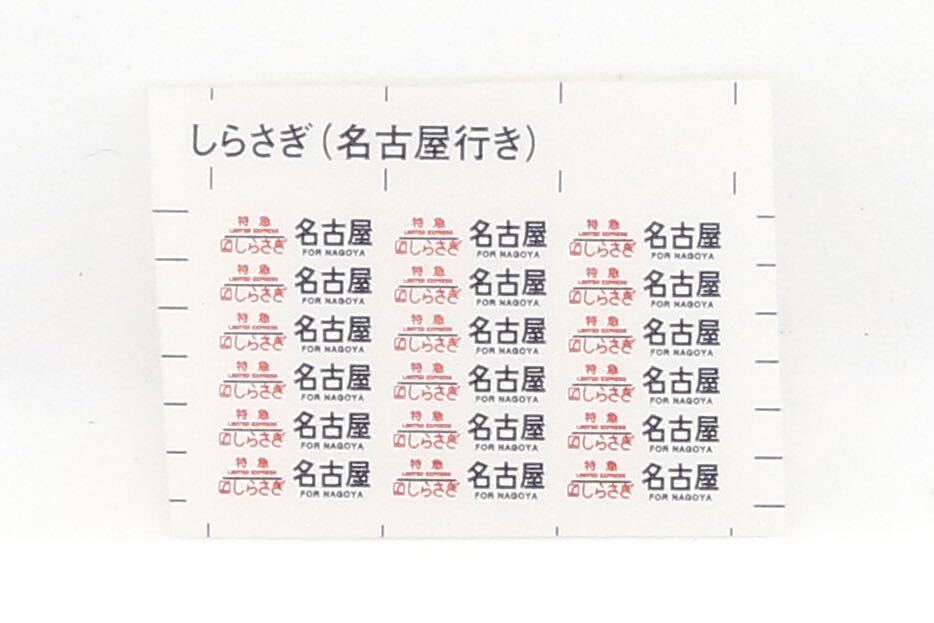 しらさぎ(名古屋行き)
特急 LIMITED EXPRESS しらさぎ 名古屋 FOR NAGOYA 特急 LIMITED EXPRESS しらさぎ 名古屋 FOR NAGOYA 特急 LIMITED EXPRESS しらさぎ 名古屋 FOR NAGOYA
特急 LIMITED EXPRESS しらさぎ 名古屋 FOR NAGOYA 特急 LIMITED EXPRESS しらさぎ 名古屋 FOR NAGOYA 特急 LIMITED EXPRESS しらさぎ 名古屋 FOR NAGOYA
特急 LIMITED EXPRESS しらさぎ 名古屋 FOR NAGOYA 特急 LIMITED EXPRESS しらさぎ 名古屋 FOR NAGOYA 特急 LIMITED EXPRESS しらさぎ 名古屋 FOR NAGOYA
特急 LIMITED EXPRESS しらさぎ 名古屋 FOR NAGOYA 特急 LIMITED EXPRESS しらさぎ 名古屋 FOR NAGOYA 特急 LIMITED EXPRESS しらさぎ 名古屋 FOR NAGOYA
特急 LIMITED EXPRESS しらさぎ 名古屋 FOR NAGOYA 特急 LIMITED EXPRESS しらさぎ 名古屋 FOR NAGOYA 特急 LIMITED EXPRESS しらさぎ 名古屋 FOR NAGOYA
特急 LIMITED EXPRESS しらさぎ 名古屋 FOR NAGOYA 特急 LIMITED EXPRESS しらさぎ 名古屋 FOR NAGOYA 特急 LIMITED EXPRESS しらさぎ 名古屋 FOR NAGOYA